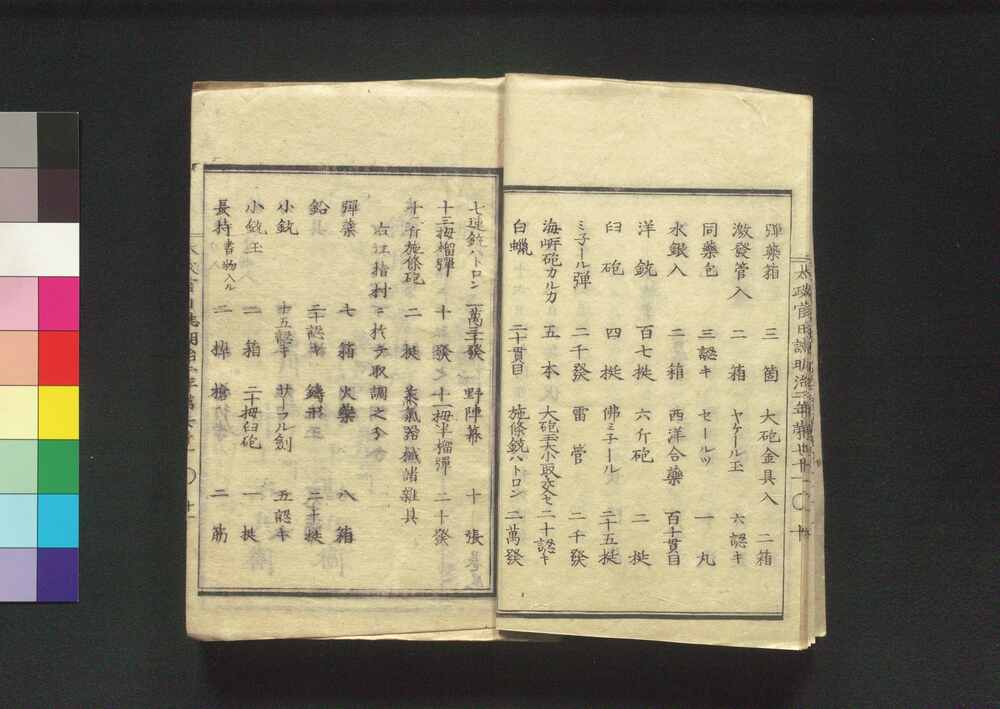 彈藥箱 三箇 大砲金具入 二箱
激發管入 二箱 ヤケール玉 六認キ
同藥包 三認キ セールツ 一丸
水銀入 二箱 西洋合藥 百十貫目
洋銃 百七挺 六斤砲 二挺
臼砲 四挺 佛ミ子ール 二十五挺
ミ子ール彈 二千發 雷管 二千發
海岸砲カルカ 五本 大砲玉大小取交セ 二十認キ
白蝋 二十貫目 施條銃ハトロン 二萬發
七連銃ハトロン 一萬三千發 野陣幕 十張
十三拇榴彈 十發 十二拇半榴彈 二十發
十二斤施條砲 二挺 蒸氣器械諸雜具
右江指村ニ於テ取調之分
彈藥 七箱 火藥 八箱
鉛 二十認キ 鑄形 二十挺
小銃 十五認キ サーフル劍 五認キ
小銃玉 一箱 二十拇臼砲 一挺
長持 書物入ル 二棹 槍 二筋